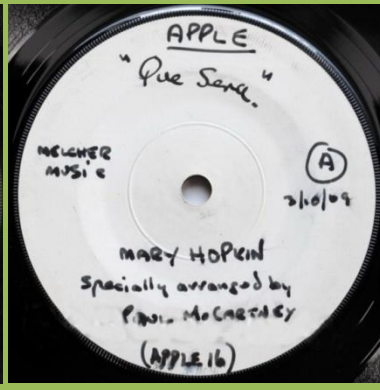 APPLE
"Que Sera."
MELCHER
MUSIC
A
3/10/69
MARY HOPKIN
Specially arranged by
PAUL McCARTNEY
(APPLE 16)